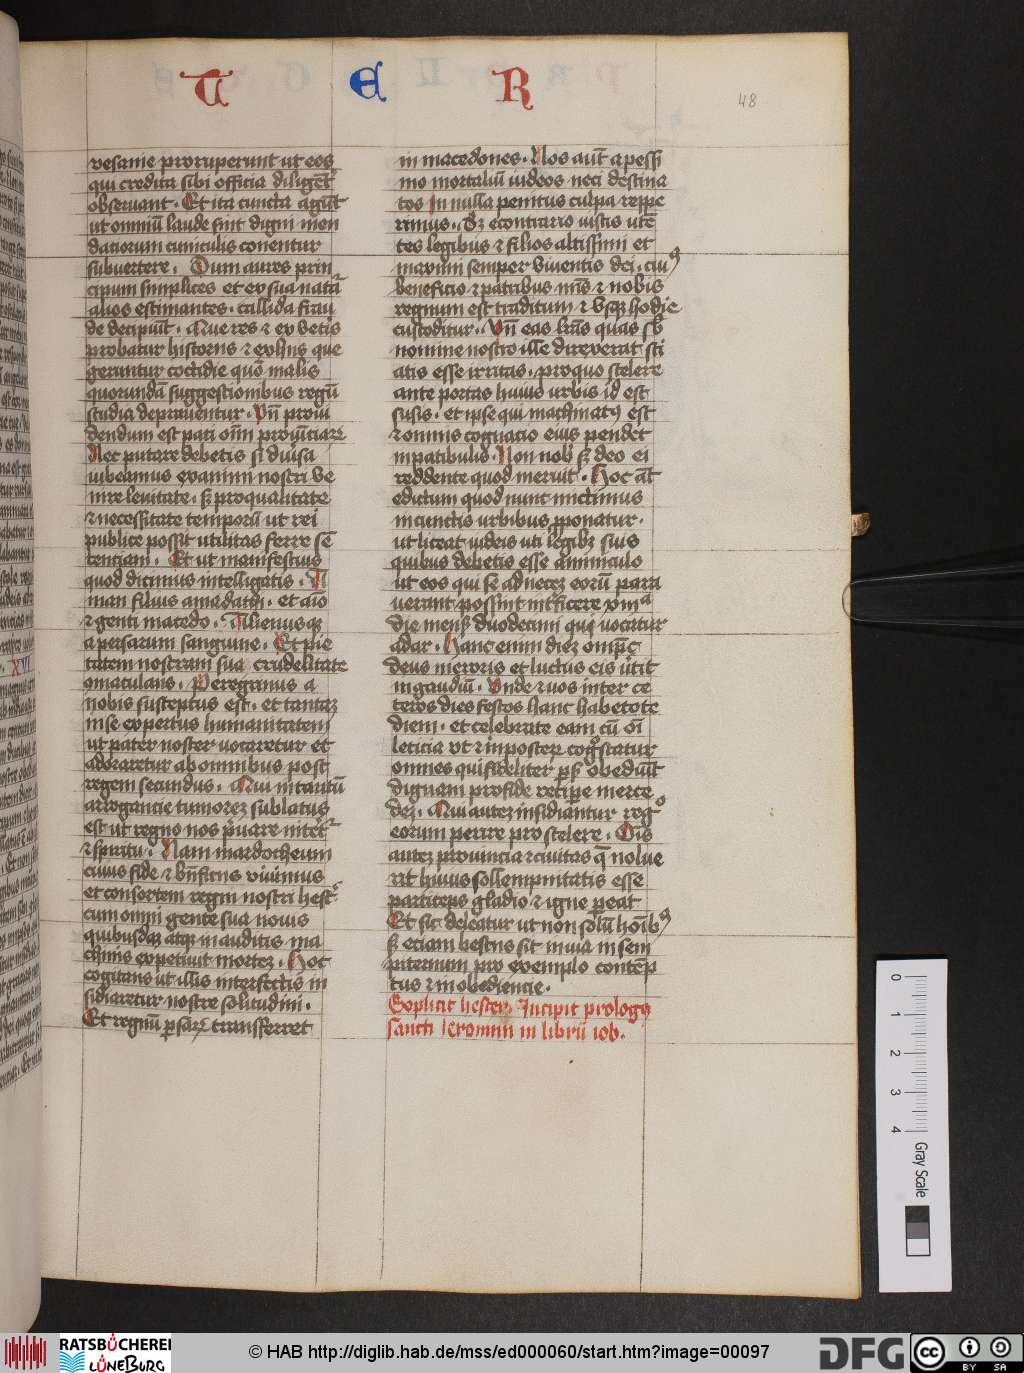 T E R
48
vesanie proruperunt ut eos
qui credita sibi officia diligent͛
observant. Et ita cuncta agūt
ut omniū laude sint digni men
daciorum cuniculis conentur
subvertere. Dum aures prin
cipum simplices et ex sua natā
alios estimantes. callida frau
de decipiūt. Que res ⁊ ex vetīs
probatur historiis ⁊ ex hijs que
geruntur cottidie quō malis
quorundā suggestionibus regū
studia depraventur. Vn̄ provi
dendum est paci om̄ provīciaꝝ
Nec putare debetis si diūsa
iubeamus ex animi nostri ve
nire levitate. sꝫ pro qualitate
⁊ necessitate temporū ut rei
publice poscit utilitas ferre sē
tenciam. Et ut manifestius
quod dicimus intelligatis. A
man filius amadathi. et aīo
⁊ genti macedo. Alienusqꝫ
a persarum sanguine. Et pie
tatem nostram sua crudelitate
omaculans. Peregrinus a
nobis susceptus est. et tantaꝫ
in se expertus humanitatem
ut pater noster vocaretur et
adoraretur ab omnibus post
regem secundus. Qui in tantū
arrogancie tumoreꝫ sublatus
est ut regno nos pͥuare nitet͛
⁊ spiritu. Nam mardocheum
cuius fide ⁊ bn̄ficiis vivimus
et consortem regni nostri hest͛
cum omni gente sua novis
quibusdaꝫ atqꝫ inauditis ma
chinis expetivit morteꝫ. Hoc
cogitans ut illis interfectis in
sidiaretur nostre solitudini.
Et regnū ꝑsaꝝ transferret
in macedones. Nos aūt a pess
mo mortaliū iudeos neci destina
tos In nulla penitus culpa reppe
rimus. Sꝫ econtrario iustis utē
tes legibus ⁊ filios altissimi et
maximi semper viventis dei. cuiꝰ
beneficio ⁊ patribus nr̄is ⁊ nobis
regnum est traditum ⁊ usqꝫ hodie
custoditur. Vn̄ eas lr̄as quas sb
nomine nostro ille direxerat sci
atis esse irritas. pro quo scelere
ante portas huius urbis id est
susis. et ipse qui machinatꝰ est
⁊ omnis cognatio eius pendet
in patibulis. Non nob̄ sꝫ deo ei
reddente quod meruit. Hoc aūt
edictum quod nunc mittimus
in cunctis urbibus ꝓponatur.
ut liceat iudeis uti legibꝫ suis
quibus debetis esse aminiculo
ut eos qui se ad neceꝫ eorū para
uerant possint int͛ficere xiiiᵃ
die mens̄ duodecimi qui vocatur
adar. Hanc enim dieꝫ omp̄ꝭ
deus meroris et luctus eis v̄tit
in gaudiū. Vnde ⁊ vos inter ce
teros dies festos hanc habetote
diem. et celebrate eam cū oī
leticia vt ⁊ in posteꝝ cognͦscatur
omnes qui fideliter ꝑsꝭ obediūt
dignam pro fide recipere merce
deꝫ. Qui auteꝫ insidiantur regͦ
eorum perire pro scelere. Oīs
auteꝫ provincia ⁊ civitas q̄ nolue
rit huius sollempnitatis esse
particeps gladio ⁊ igne ꝑeat
Et sic deleatur ut non solū hoībꝰ
sꝫ etiam bestiis sit invia in sem
piternum pro exemplo contēp
tus ⁊ inobediencie.
Explicit hester. Incipit prologꝰ
sancti Ieronimi in librū iob.
0 1 2 3 4
Gray Scale
RATSBÜCHEREI
LÜNEBURG
© HAB http://diglib.hab.de/mss/ed000060/start.htm?image=00097
DFG
cc BY SA